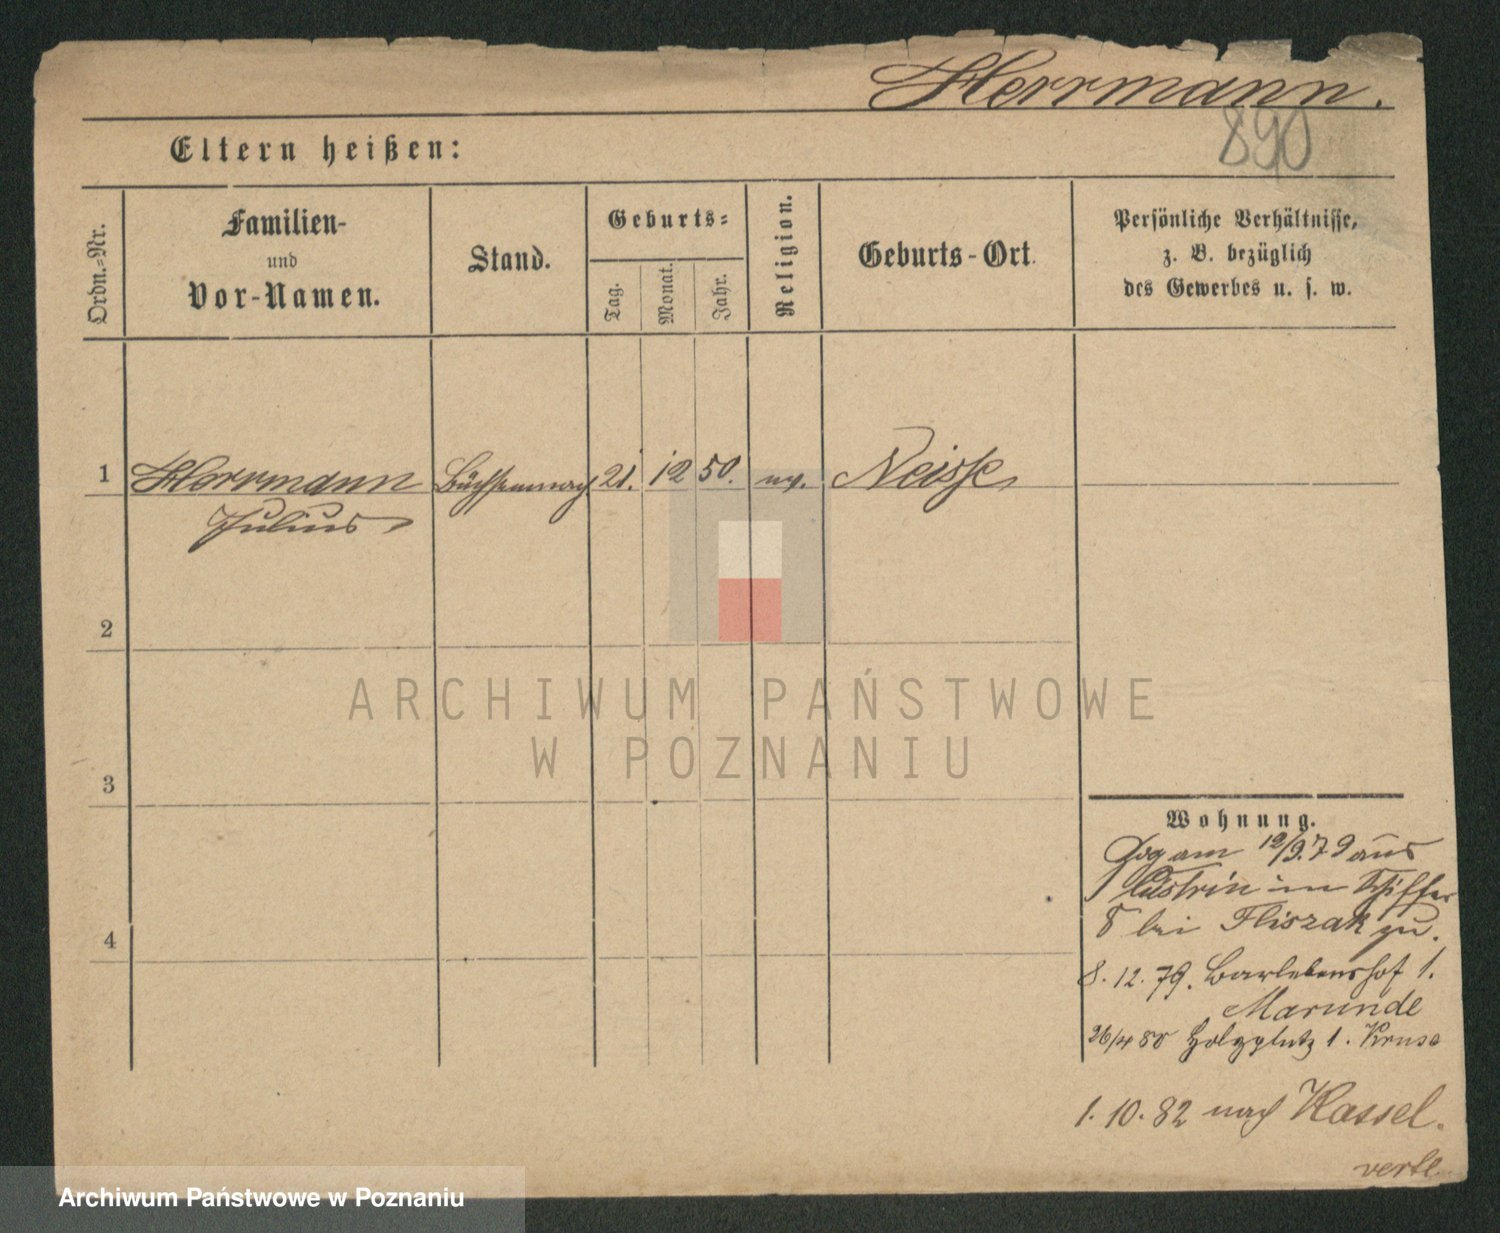 Herrmann.
890
Eltern heißen:
Ordn.-Nr.
Familien-
und
Vor-Namen.
Stand.
Geburts-
Tag.
Monat.
Jahr.
Religion.
Geburts-Ort.
Persönliche Verhältnisse,
z. B. bezüglich
des Gewerbes u. s. w.
1
Herrmann
Julius
Büchsenmach
21.
12
50.
Neisse
2
3
4
Wohnung.
Zog am 12/9.79 aus
Cüstrin im Schiffer
8 bei Fliszak zu.
8.12.79. Barlebenshof 1.
Marunde
26/4 80 Holzplatz 1. Kruse
1.10.82 nach Kassel.
verte
ARCHIWUM PAŃSTWOWE
W POZNANIU
Archiwum Państwowe w Poznaniu